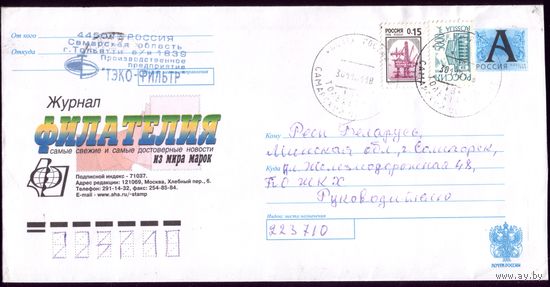 От кого
445045 РОССИЯ
Самарская область
Откуда
г. Тольятти а/я 1839
Производственное
предприятие
"ТЭКО-ФИЛЬТР"
РОССИЯ 0.15
РОССИЯ
А
РОССИЯ
Журнал
ФИЛАТЕЛИЯ
самые свежие и самые достоверные новости
из мира марок
Подписной индекс - 71037.
Адрес редакции: 121069, Москва, Хлебный пер., 6.
Телефон: 291-14-32, факс: 254-85-84.
E-mail - www.sha.ru/-stamp
223710
Кому Респ Беларусь,
Минская обл, г. Солигорск,
Куда ул. Железнодорожная 48,
ПО ЖКХ
Руководителю
Индекс места назначения
223710
ПОЧТА РОССИИ
www.ay.by